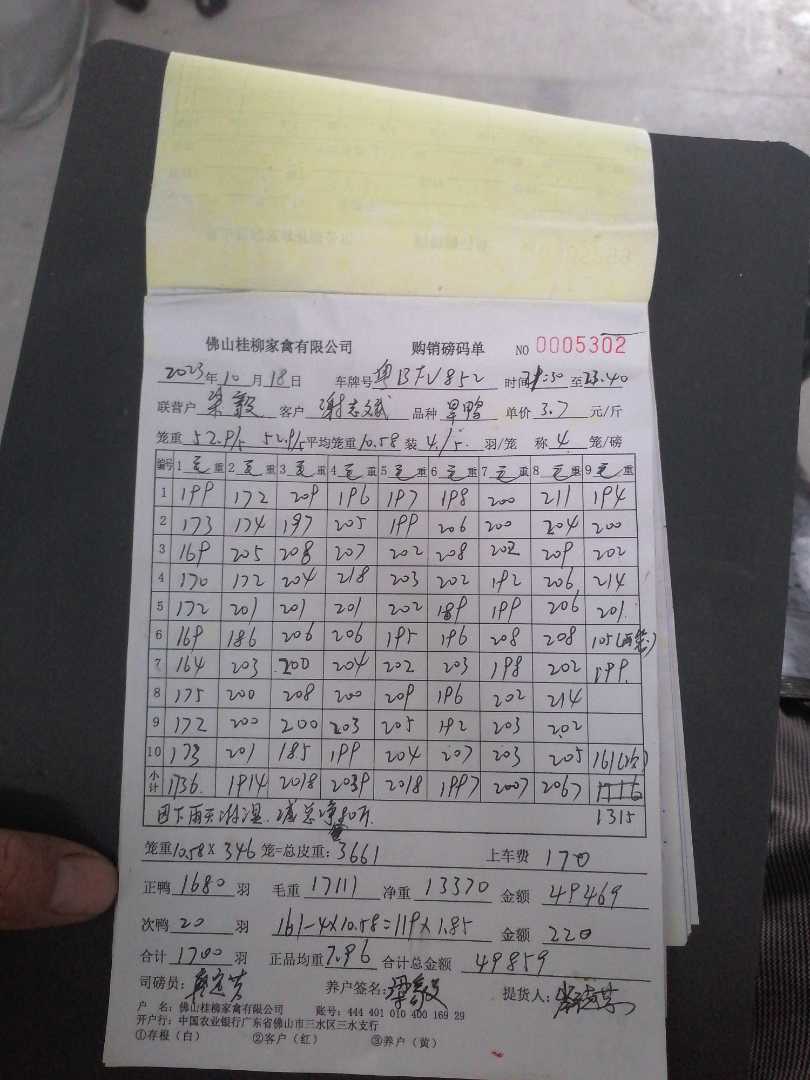 佛山桂柳家禽有限公司 购销磅码单 NO 0005302
2023年10月18日 车牌号 粤BFV852 时间 21:50 至 23.40
联营户 梁毅 客户 谢志斌 品种 旱鸭 单价 3.7 元/斤
笼重 52.9/5 52.9/5 平均笼重 10.58 装 4.15. 羽/笼 称 4 笼/磅
编号 1 毛 重 2 毛 重 3 毛 重 4 毛 重 5 毛 重 6 毛 重 7 毛 重 8 毛 重 9 毛 重
1 199 172 209 196 197 198 200 211 194
2 173 174 197 205 199 206 200 204 200
3 169 205 208 207 202 208 202 209 202
4 170 172 204 218 203 202 192 206 214
5 172 201 201 201 202 189 199 206 201
6 169 186 206 206 195 196 208 208 105(两笼)
7 164 203 200 204 202 203 198 202 199
8 175 200 208 200 209 196 202 214
9 172 200 200 203 205 192 203 202
10 173 201 185 199 204 207 203 205 161(次)
小计 1736. 1914 2018 2039 2018 1997 2007 2067
1315
因下雨天淋湿.减总净80斤.
笼重 10.58 X 346 笼=总皮重: 3661 上车费 170
正鸭 1680 羽 毛重 17111 净重 13370 金额 49469
次鸭 20 羽 161-4×10.58=119×1.85 金额 220
合计 1700 羽 正品均重 7.96 合计总金额 49859
司磅员: 养户签名: 梁毅 提货人:
户 名: 佛山桂柳家禽有限公司 账号: 444 401 010 400 169 29
开户行: 中国农业银行广东省佛山市三水区三水支行
①存根(白) ②客户(红) ③养户(黄)